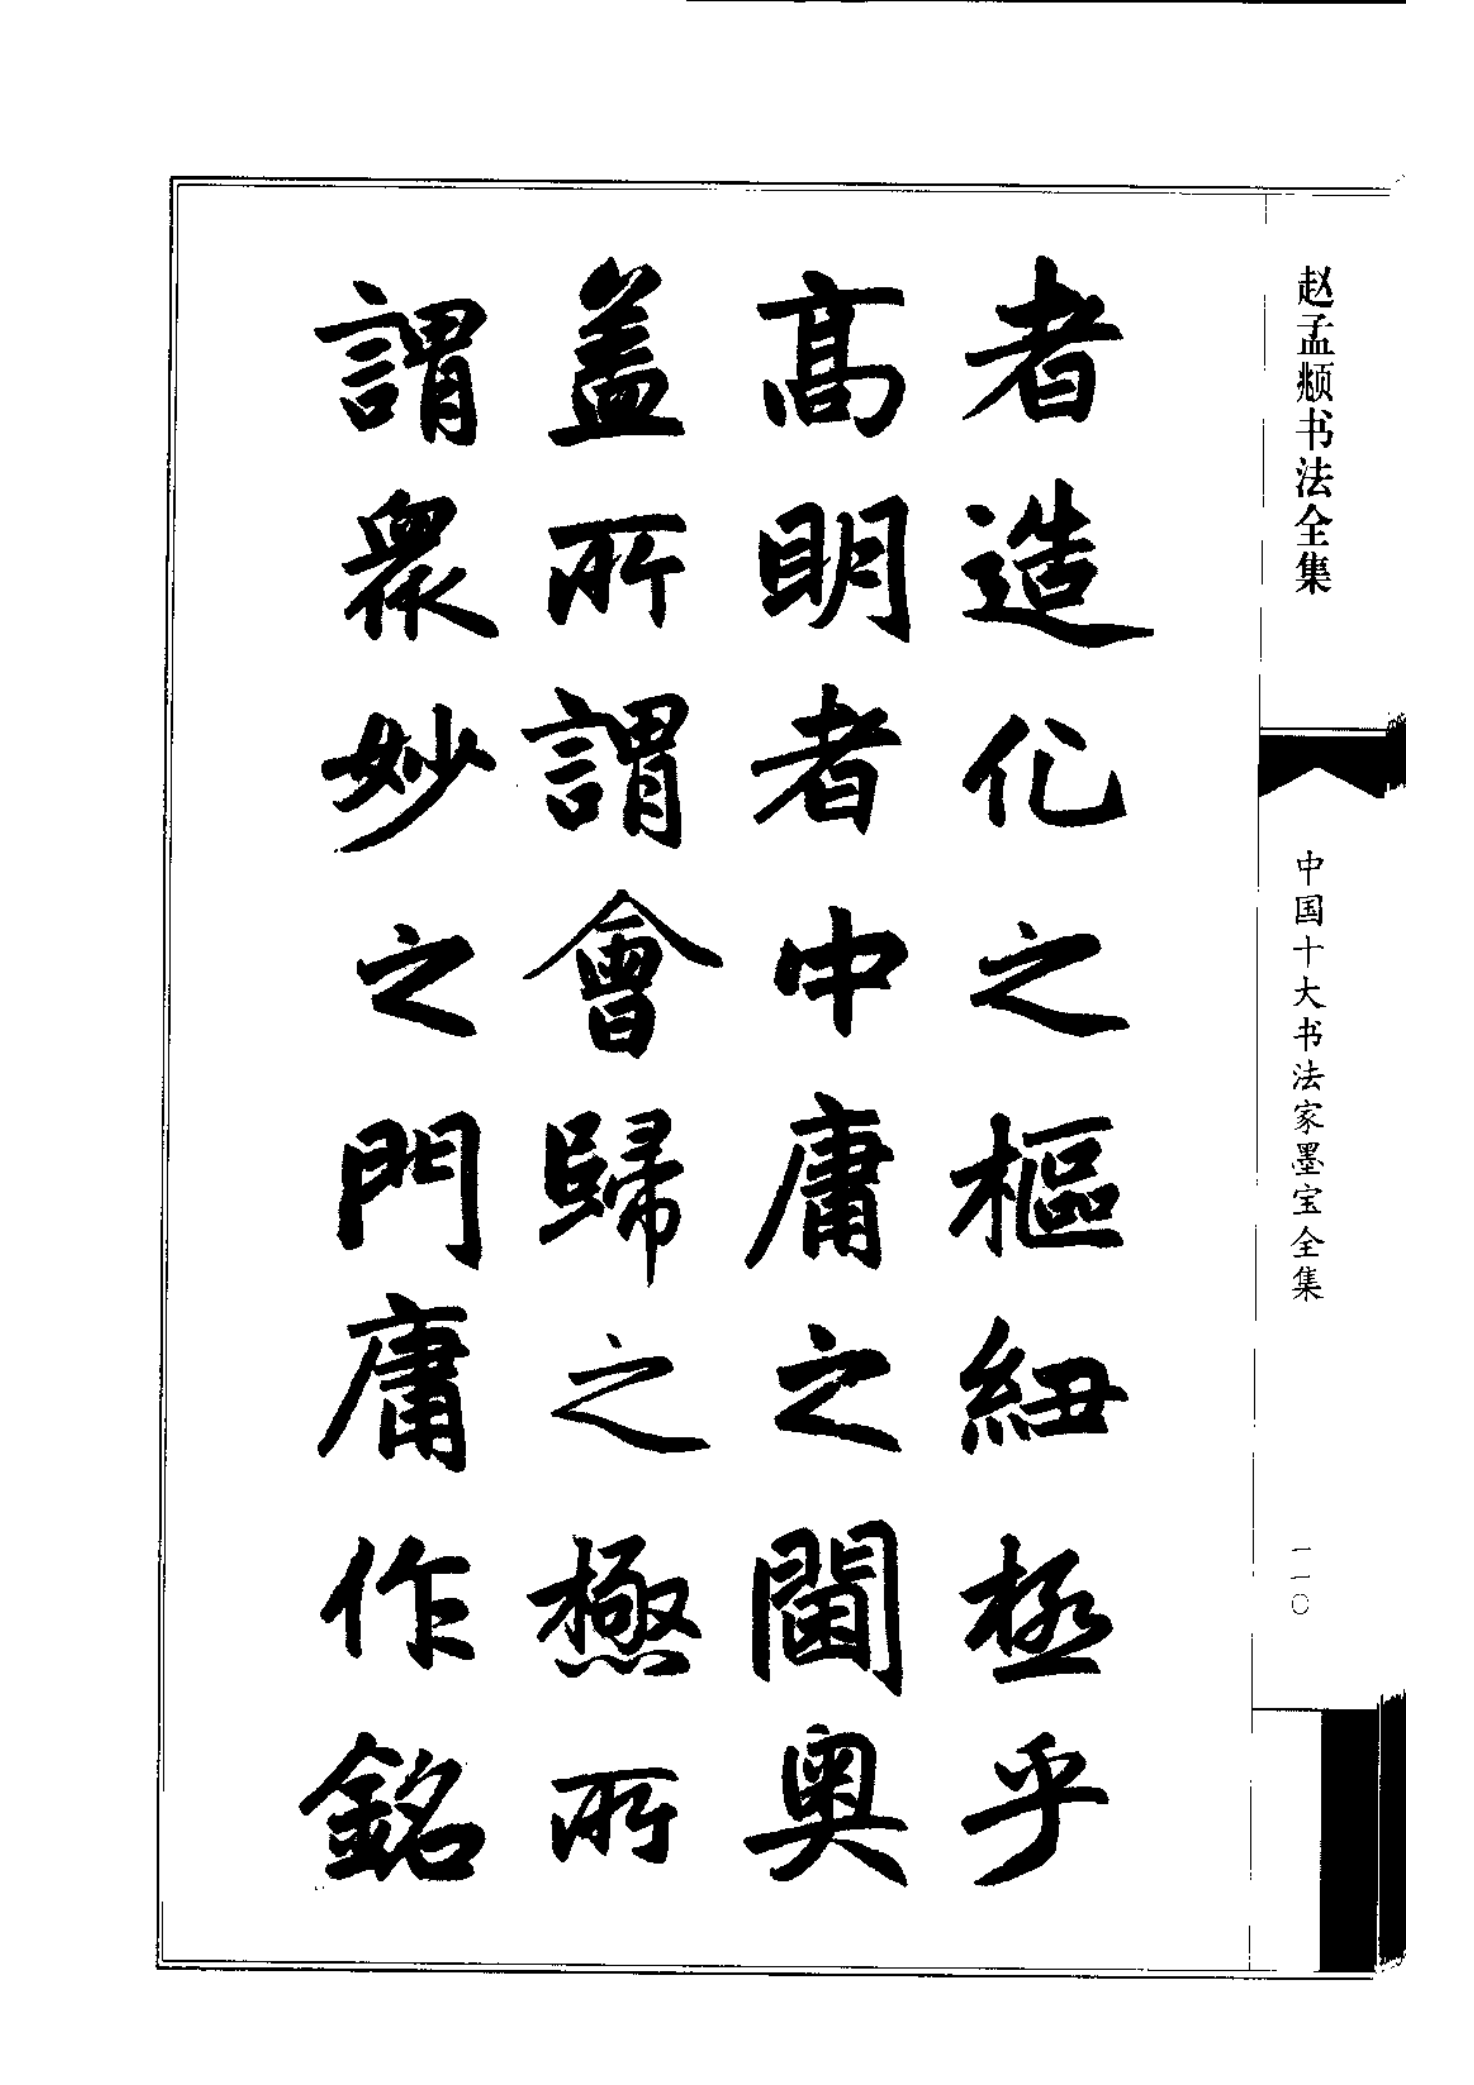 赵孟頫书法全集
中国十大书法家墨宝全集
一一〇
者造化之樞紐極乎
高明者中庸之閫奧
盖所謂會歸之極所
謂衆妙之門庸作銘